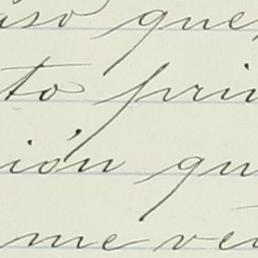 aso que
to prin
ión qu
me ve